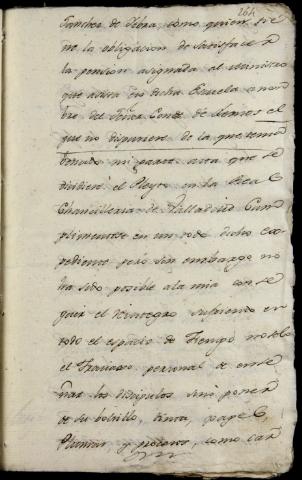 264
Sanchez de Ulloa, como quien tie
ne la obligacion de satisfacer
la pension asignada al Ministro
que asista en dicha Escuela a nom
bre del Señor Conde de Lemos el
que no disponere de la que
mi parte asta que se
el Pleyto en la Real
Chancilleria de Valladolid Cum
plimentose en un todo dicho ex
pediente pero sin embargo no
ha sido posible a la mia conse
guir el reintegro sufriendo en
todo el espacio de Tiempo no solo
el Travajo personal de ense
ñar los discipulos sino poner
de su bolsillo, tinta, papel,
Plumas, y